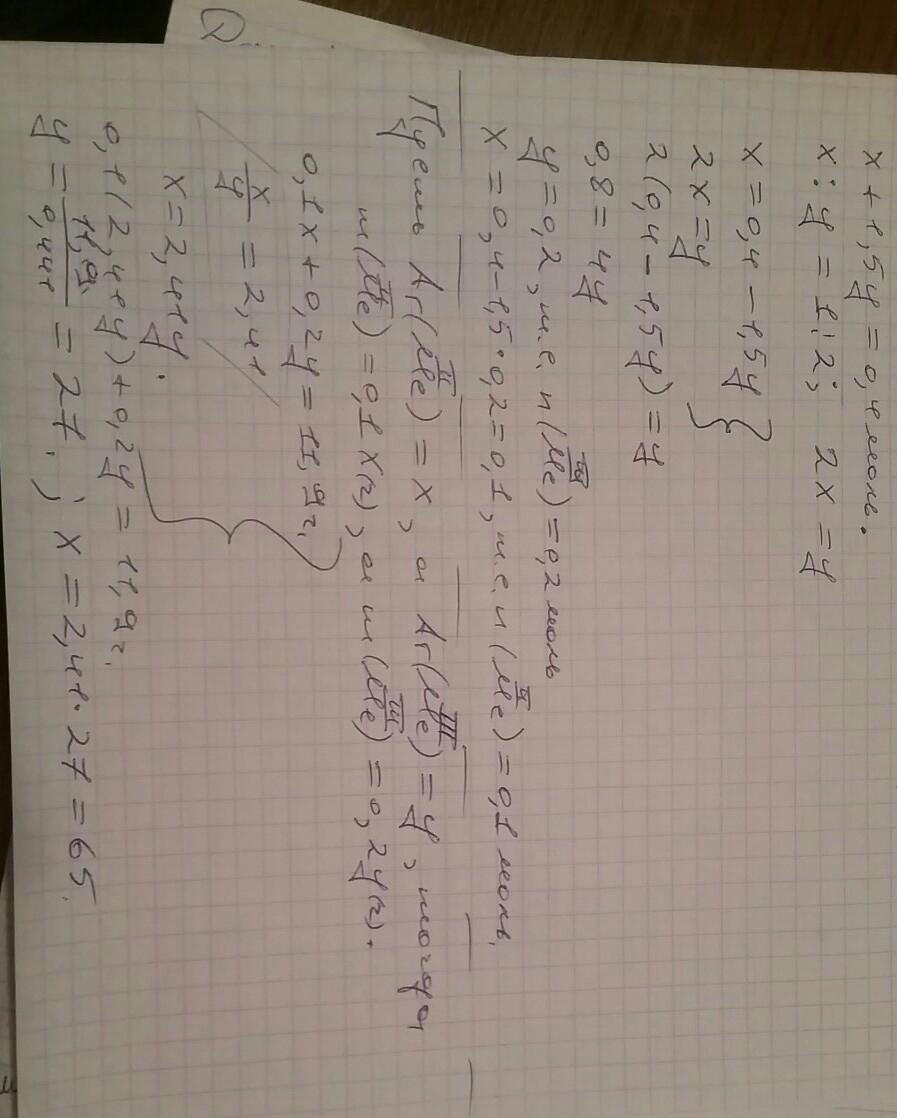 x + 1,5y = 0,4 моль.
x : y = 1:2; 2x = y
x = 0,4 - 1,5y }
2x = y
2(0,4 - 1,5y) = y
0,8 = 4y
y = 0,2, т.е. n(Me^III) = 0,2 моль
x = 0,4 - 1,5·0,2 = 0,1, т.е. n(Me^II) = 0,1 моль.
Пусть Ar(Me^II) = x, а Ar(Me^III) = y, тогда
m(Me^II) = 0,1x(г), а m(Me^III) = 0,2y(г).
0,1x + 0,2y = 11,9г. }
x/y = 2,41
x = 2,41y.
0,1(2,41y) + 0,2y = 11,9г.
y = 11,9/0,441 = 27.; x = 2,41·27 = 65.